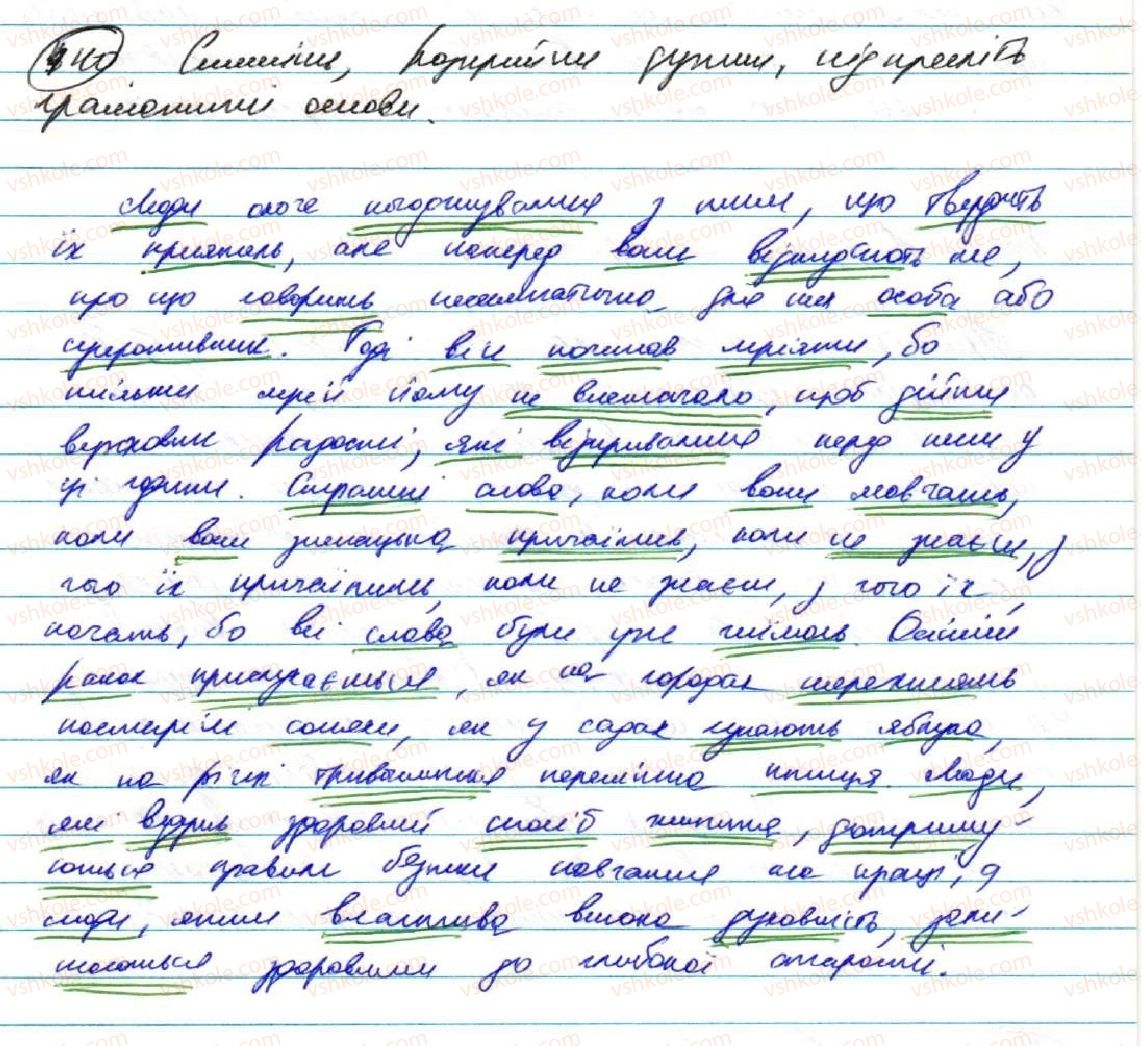 440 Спишіть, розкрийте дужки, підкресліть
граматичні основи.
Люди охоче погоджувалися з тим, що твердить
їх приятель, але наперед вони відкидають те,
про що говорить несимпатична для них особа або
супротивник. Тоді він починав мріяти, бо
тільки мрій йому не вистачало, щоб дійти
верховин радості, які відкривалися перед ним у
ці години. Страшні слова, коли вони мовчать,
коли вони зненацька причаїлись, коли не знаєш, з
чого їх причаїтись, коли не знаєш, з чого їх
почать, бо всі слова були уже чиїмись. Осінній
ранок прислухається, як на городах шерехтять
постарілі соняхи, як у садах гупають яблука,
як на річці тривожиться перелітна птиця. Люди,
які ведуть здоровий спосіб життя, дотриму-
ються правил безпеки навчання та праці, а
люди, яким властива висока духовність, зали-
шаються здоровими до глибокої старості.
vshkole.com